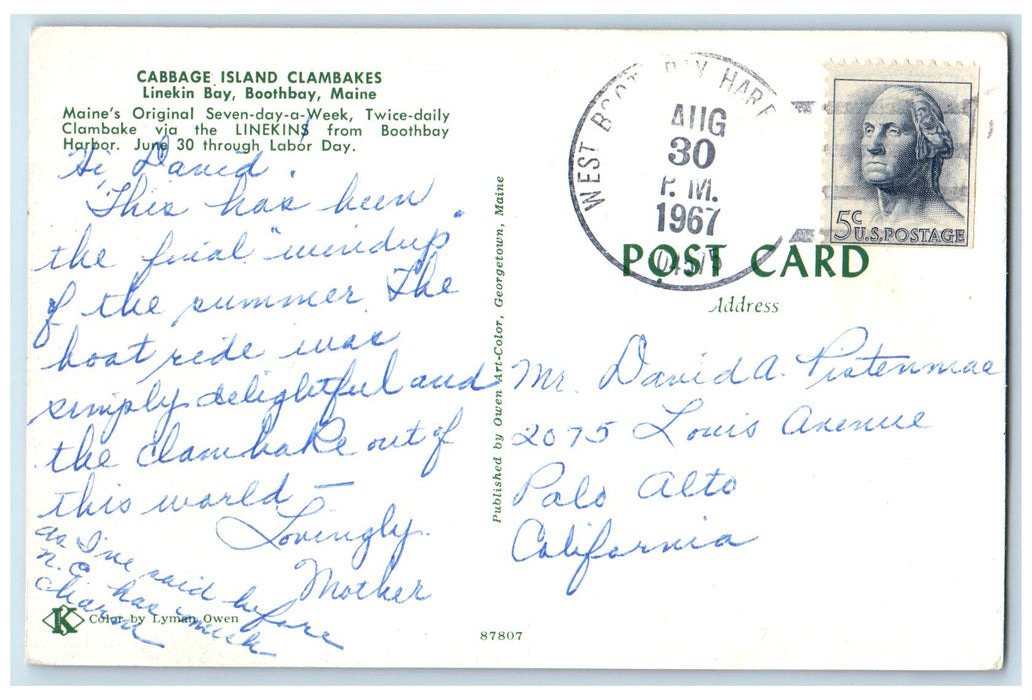 CABBAGE ISLAND CLAMBAKES
Linekin Bay, Boothbay, Maine
Maine's Original Seven-day-a-Week, Twice-daily
Clambake via the LINEKINS from Boothbay
Harbor. June 30 through Labor Day.
Hi, David.
This has been
the final "windup"
of the summer. The
boat ride was
simply delightful and
the clambake out of
this world —
Lovingly.
Mother
as I've said before
N.E. has much
charm
K Color by Lyman Owen
Published by Owen Art-Color, Georgetown, Maine
87807
WEST BOOTHBAY HARB
AUG
30
P. M.
1967
04575
5c
U.S.POSTAGE
POST CARD
Address
Mr. David A.
2075 Louis Avenue
Palo Alto
California